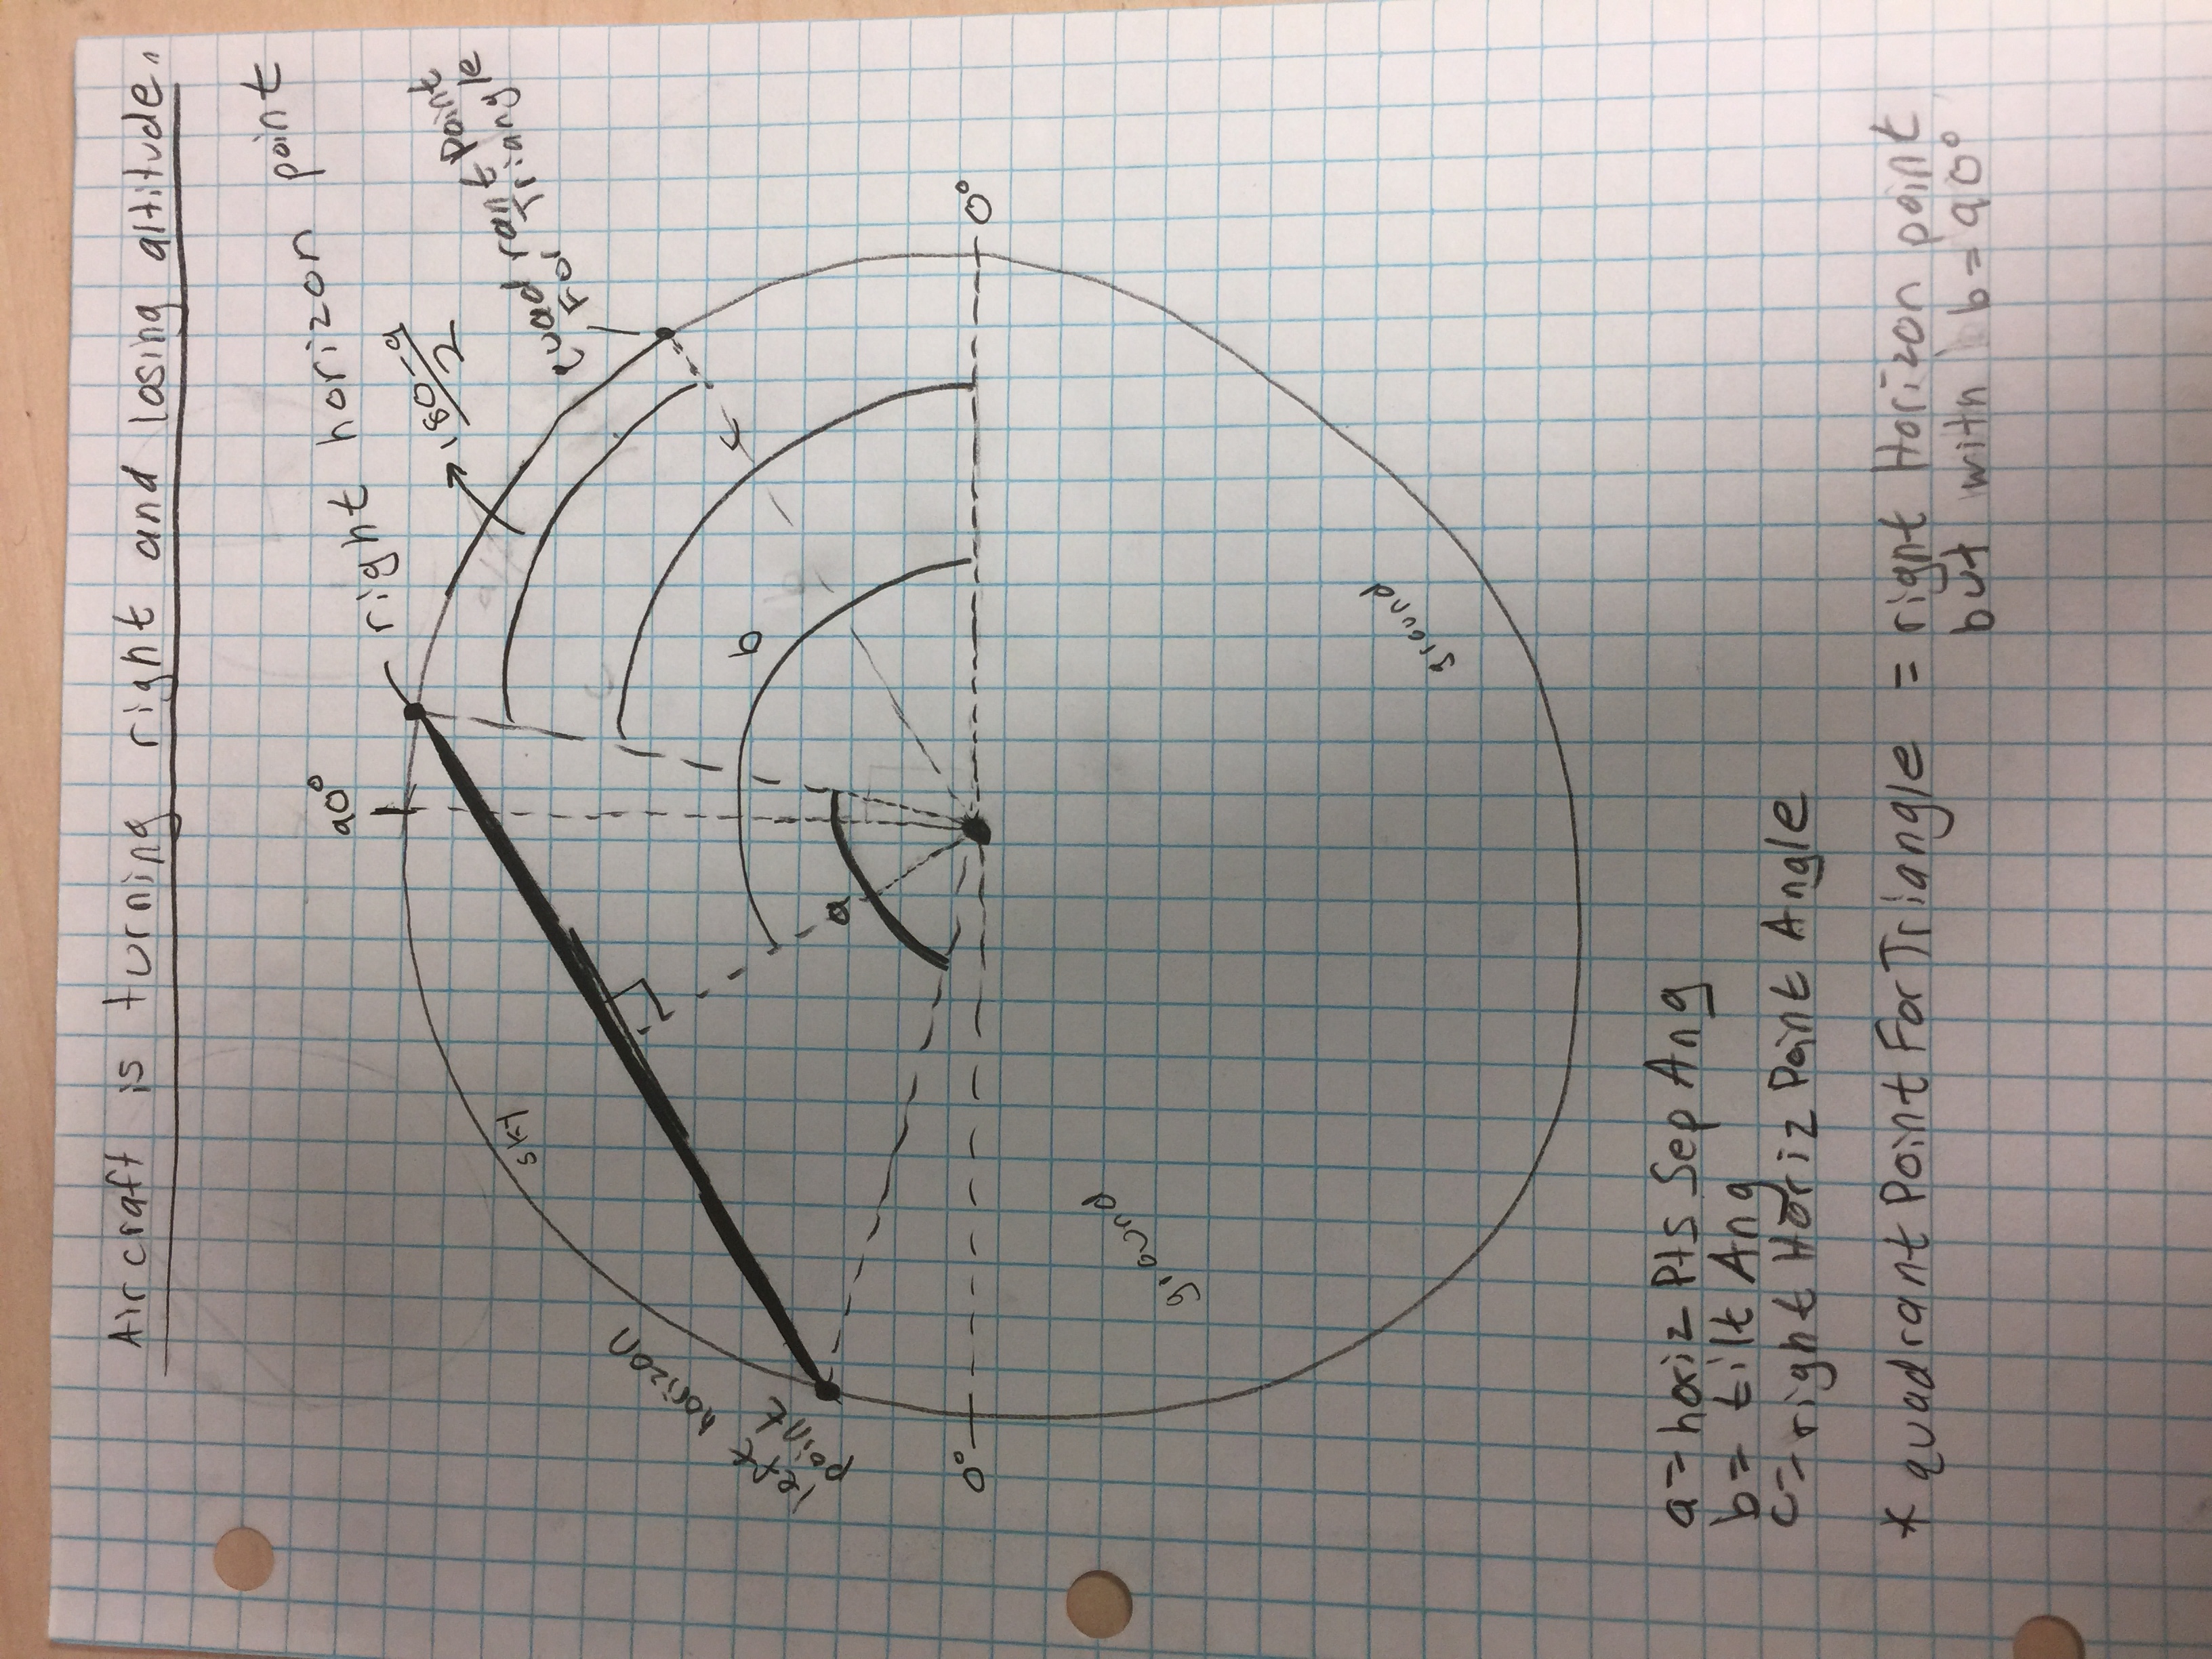 Aircraft is turning right and losing altitude.
90°
right horizon point
180-a
2
quadrant Point
For Triangle
sky
left horizon
point
c
b
a
0°
0°
ground
ground
a= horiz Pts Sep Ang
b= tilt Ang
c= right Horiz Point Angle
* quadrant Point For Triangle = right Horizon point
but with b= 90°